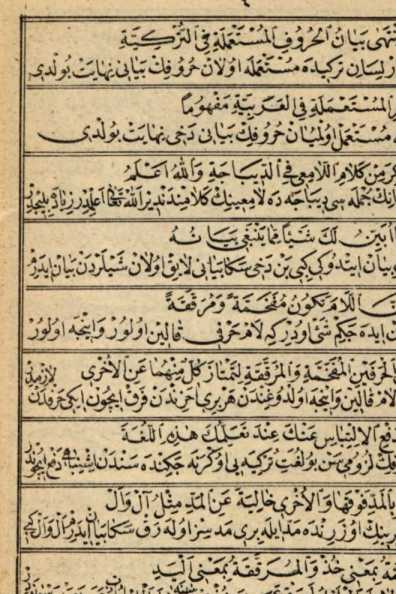 نتهى بيان الحروف المستعملة فى التركية
لسان تركيده مستعمله اولان حروفك بيانى نهايت بولدى
المستعملة فى العربية مفهوما
مستعمل اولميان حروفك بيانى دخى نهايت بولدى
من كلام اللامعى فى الديباجة والله اعلم
جمله سى ديباجه ده لامعينك كلامندندر الله اعلمدر
ابين لك شيئا مما ينبغى بيانه
بيان ايتدوكى كبى بن دخى سكا بيانى لايق اولان شيلردن بيان ايدرم
اللام يكون مفخمة ومرققة
ايده حكم شئ اودر كه لام حرفى قالين اولور وانجه اولور
الحرفين المفخمة والمرققة لتمتاز كل منهما عن الاخرى
لام قالين وانجه اولدوغندن هر برى اخرندن فرق ايچون ايكى حرفدن
دفع الالتباس عنك عند تعلمك هذه اللغة
لزومى سن بو لغت تركيه يى اوكرنه جكنده سندن
بالمد فوقها والاخرى خالية عن المد مثل آل وال
رينك اوزرنده مد ايله برى مد سز اوله رق سكا بيان ايدرم آل وال كبى
بمعنى خذ والمرققة بمعنى اليد